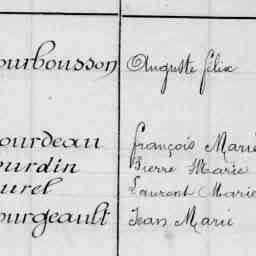 ourbousson Auguste félix
ourdeau François Marie
ourdin Pierre Marie
urel Laurent Marie
ourgeault Jean Marie